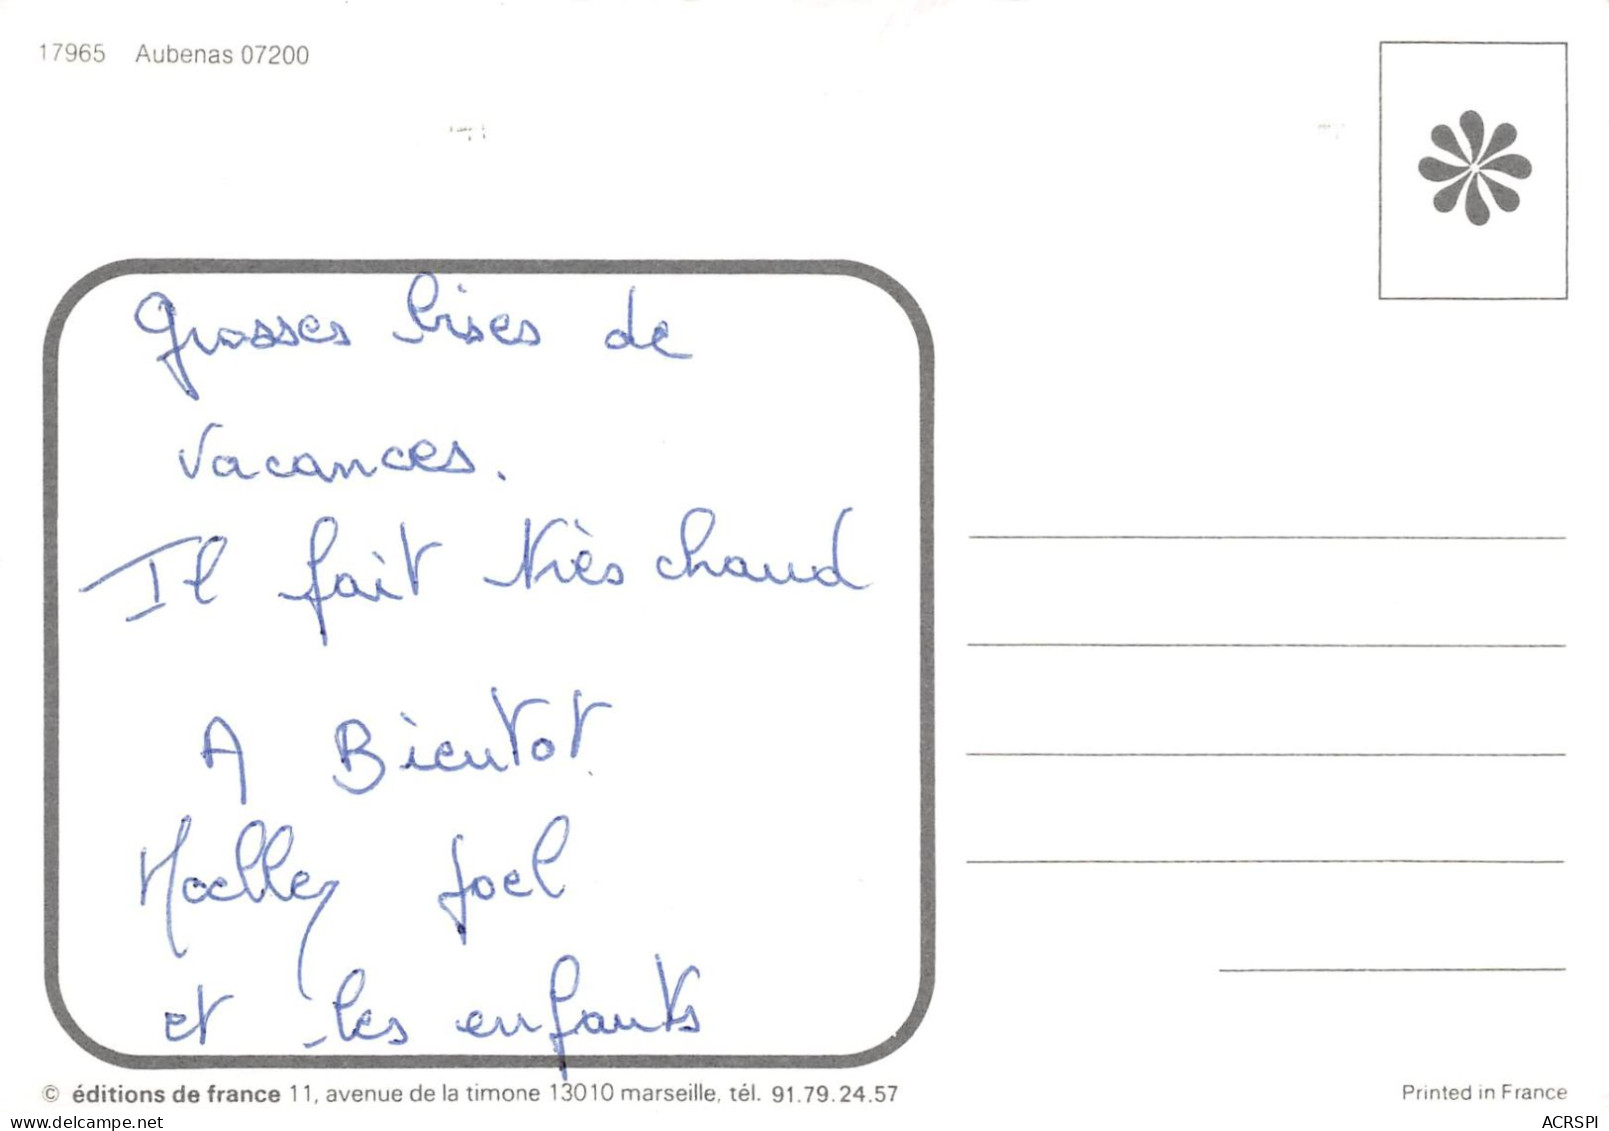 17965 Aubenas 07200
Grosses bises de
vacances.
Il fait très chaud
A Bientot
Joel
et les enfants
© éditions de france 11, avenue de la timone 13010 marseille, tél. 91.79.24.57
Printed in France
ACRSPI